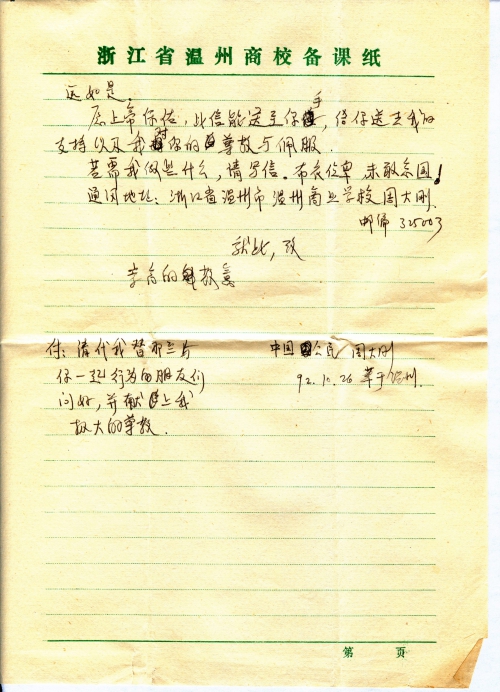 浙江省温州商校备课纸
远如是。
愿上帝保佑,此信能送至你手,给你送去我的
支持以及我对你的尊敬与佩服。
若需我做些什么,请写信。布衣位卑,未敢忘国!
通因地址:浙江省温州市温州商业学校周大刚
邮编 325003
就此,致
崇高的敬意
付:请代我替所有与
你一起行为的朋友们
问好,并献上我
极大的尊敬。
中国公民 周大刚
92.12.26 草于温州.
第 页